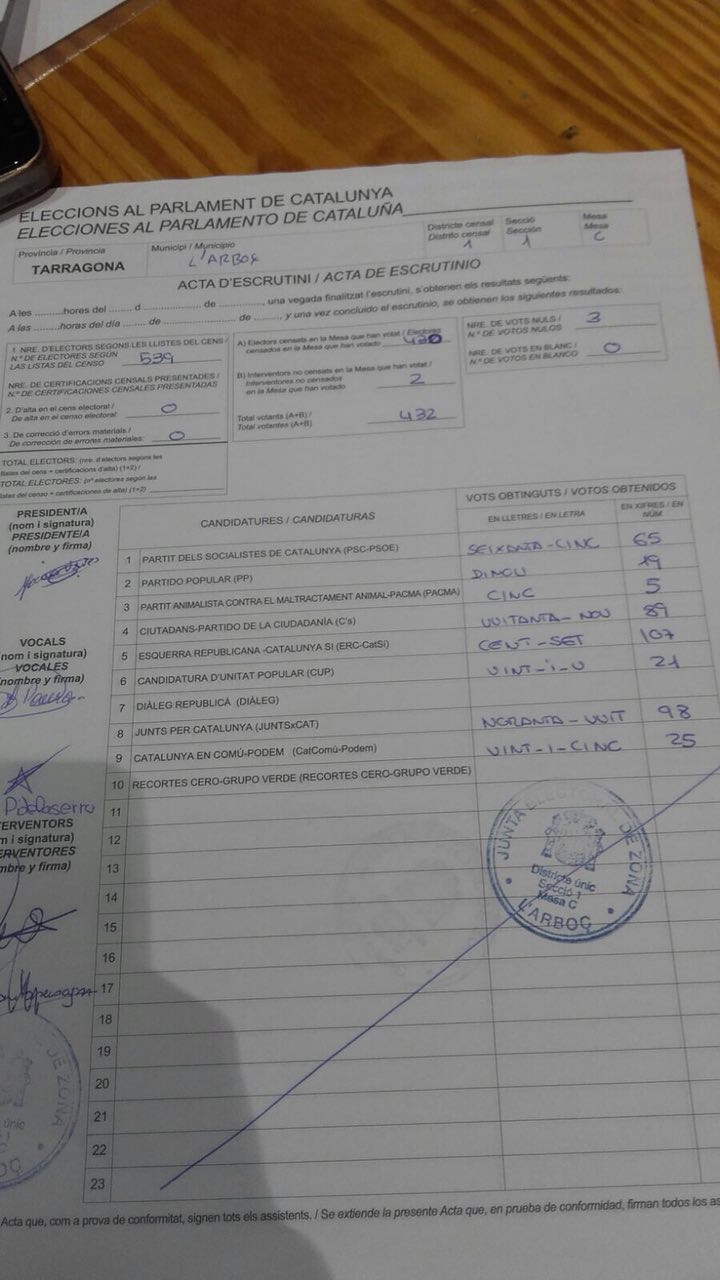 ELECCIONS AL PARLAMENT DE CATALUNYA
ELECCIONES AL PARLAMENTO DE CATALUÑA
Provincia / Provincia
TARRAGONA
Municipi / Municipio
L'ARBOÇ
Districte censal
Distrito censal
1
Secció
Sección
1
Mesa
Mesa
C
ACTA D'ESCRUTINI / ACTA DE ESCRUTINIO
A les .........hores del ....... d ................... de ............, una vegada finalitzat l'escrutini, s'obtenen els resultats següents:
A las .........horas del día ....... de ................... de ........, y una vez concluido el escrutinio, se obtienen los siguientes resultados:
1 NRE. D'ELECTORS SEGONS LES LLISTES DEL CENS /
N.º DE ELECTORES SEGÚN
LAS LISTAS DEL CENSO 539
NRE. DE CERTIFICACIONS CENSALS PRESENTADES /
N.º DE CERTIFICACIONES CENSALES PRESENTADAS
2. D'alta en el cens electoral /
De alta en censo electoral: 0
3. De correcció d'errors materials /
De corrección de errores materiales: 0
TOTAL ELECTORS: (nre. d'electors segons les
llistes del cens + certificacions d'alta) (1+2) /
TOTAL ELECTORES: (nº electores según las
listas del censo + certificaciones de alta) (1+2)
A) Electors censats en la Mesa que han votat / Electores
censados en la Mesa que han votado 430
B) Interventors no censats en la Mesa que han votat /
Interventores no censados
en la Mesa que han votado 2
Total votants (A+B) /
Total votantes (A+B) 432
NRE. DE VOTS NULS /
N.º DE VOTOS NULOS 3
NRE. DE VOTS EN BLANC /
N.º DE VOTOS EN BLANCO 0
PRESIDENT/A
(nom i signatura)
PRESIDENTE/A
(nombre y firma)
VOCALS
(nom i signatura)
VOCALES
(nombre y firma)
ERVENTORS
(nom i signatura)
ERVENTORES
mbre y firma)
CANDIDATURES / CANDIDATURAS
VOTS OBTINGUTS / VOTOS OBTENIDOS
EN LLETRES / EN LETRA
EN XIFRES / EN NÚM.
1 PARTIT DELS SOCIALISTES DE CATALUNYA (PSC-PSOE) SEIXANTA-CINC 65
2 PARTIDO POPULAR (PP) DINOU 19
3 PARTIT ANIMALISTA CONTRA EL MALTRACTAMENT ANIMAL-PACMA (PACMA) CINC 5
4 CIUTADANS-PARTIDO DE LA CIUDADANÍA (C's) VUITANTA-NOU 89
5 ESQUERRA REPUBLICANA -CATALUNYA SI (ERC-CatSí) CENT-SET 107
6 CANDIDATURA D'UNITAT POPULAR (CUP) VINT-I-U 21
7 DIÀLEG REPUBLICÀ (DIÀLEG)
8 JUNTS PER CATALUNYA (JUNTSxCAT) NORANTA-VUIT 98
9 CATALUNYA EN COMÚ-PODEM (CatComú-Podem) VINT-I-CINC 25
10 RECORTES CERO-GRUPO VERDE (RECORTES CERO-GRUPO VERDE)
11
12
13
14
15
16
17
18
19
20
21
22
23
JUNTA ELECTORAL DE ZONA
Districte únic
Secció 1
Mesa C
L'ARBOÇ
DE ZONA
Acta que, com a prova de conformitat, signen tots els assistents. / Se extiende la presente Acta que, en prueba de conformidad, firman todos los as